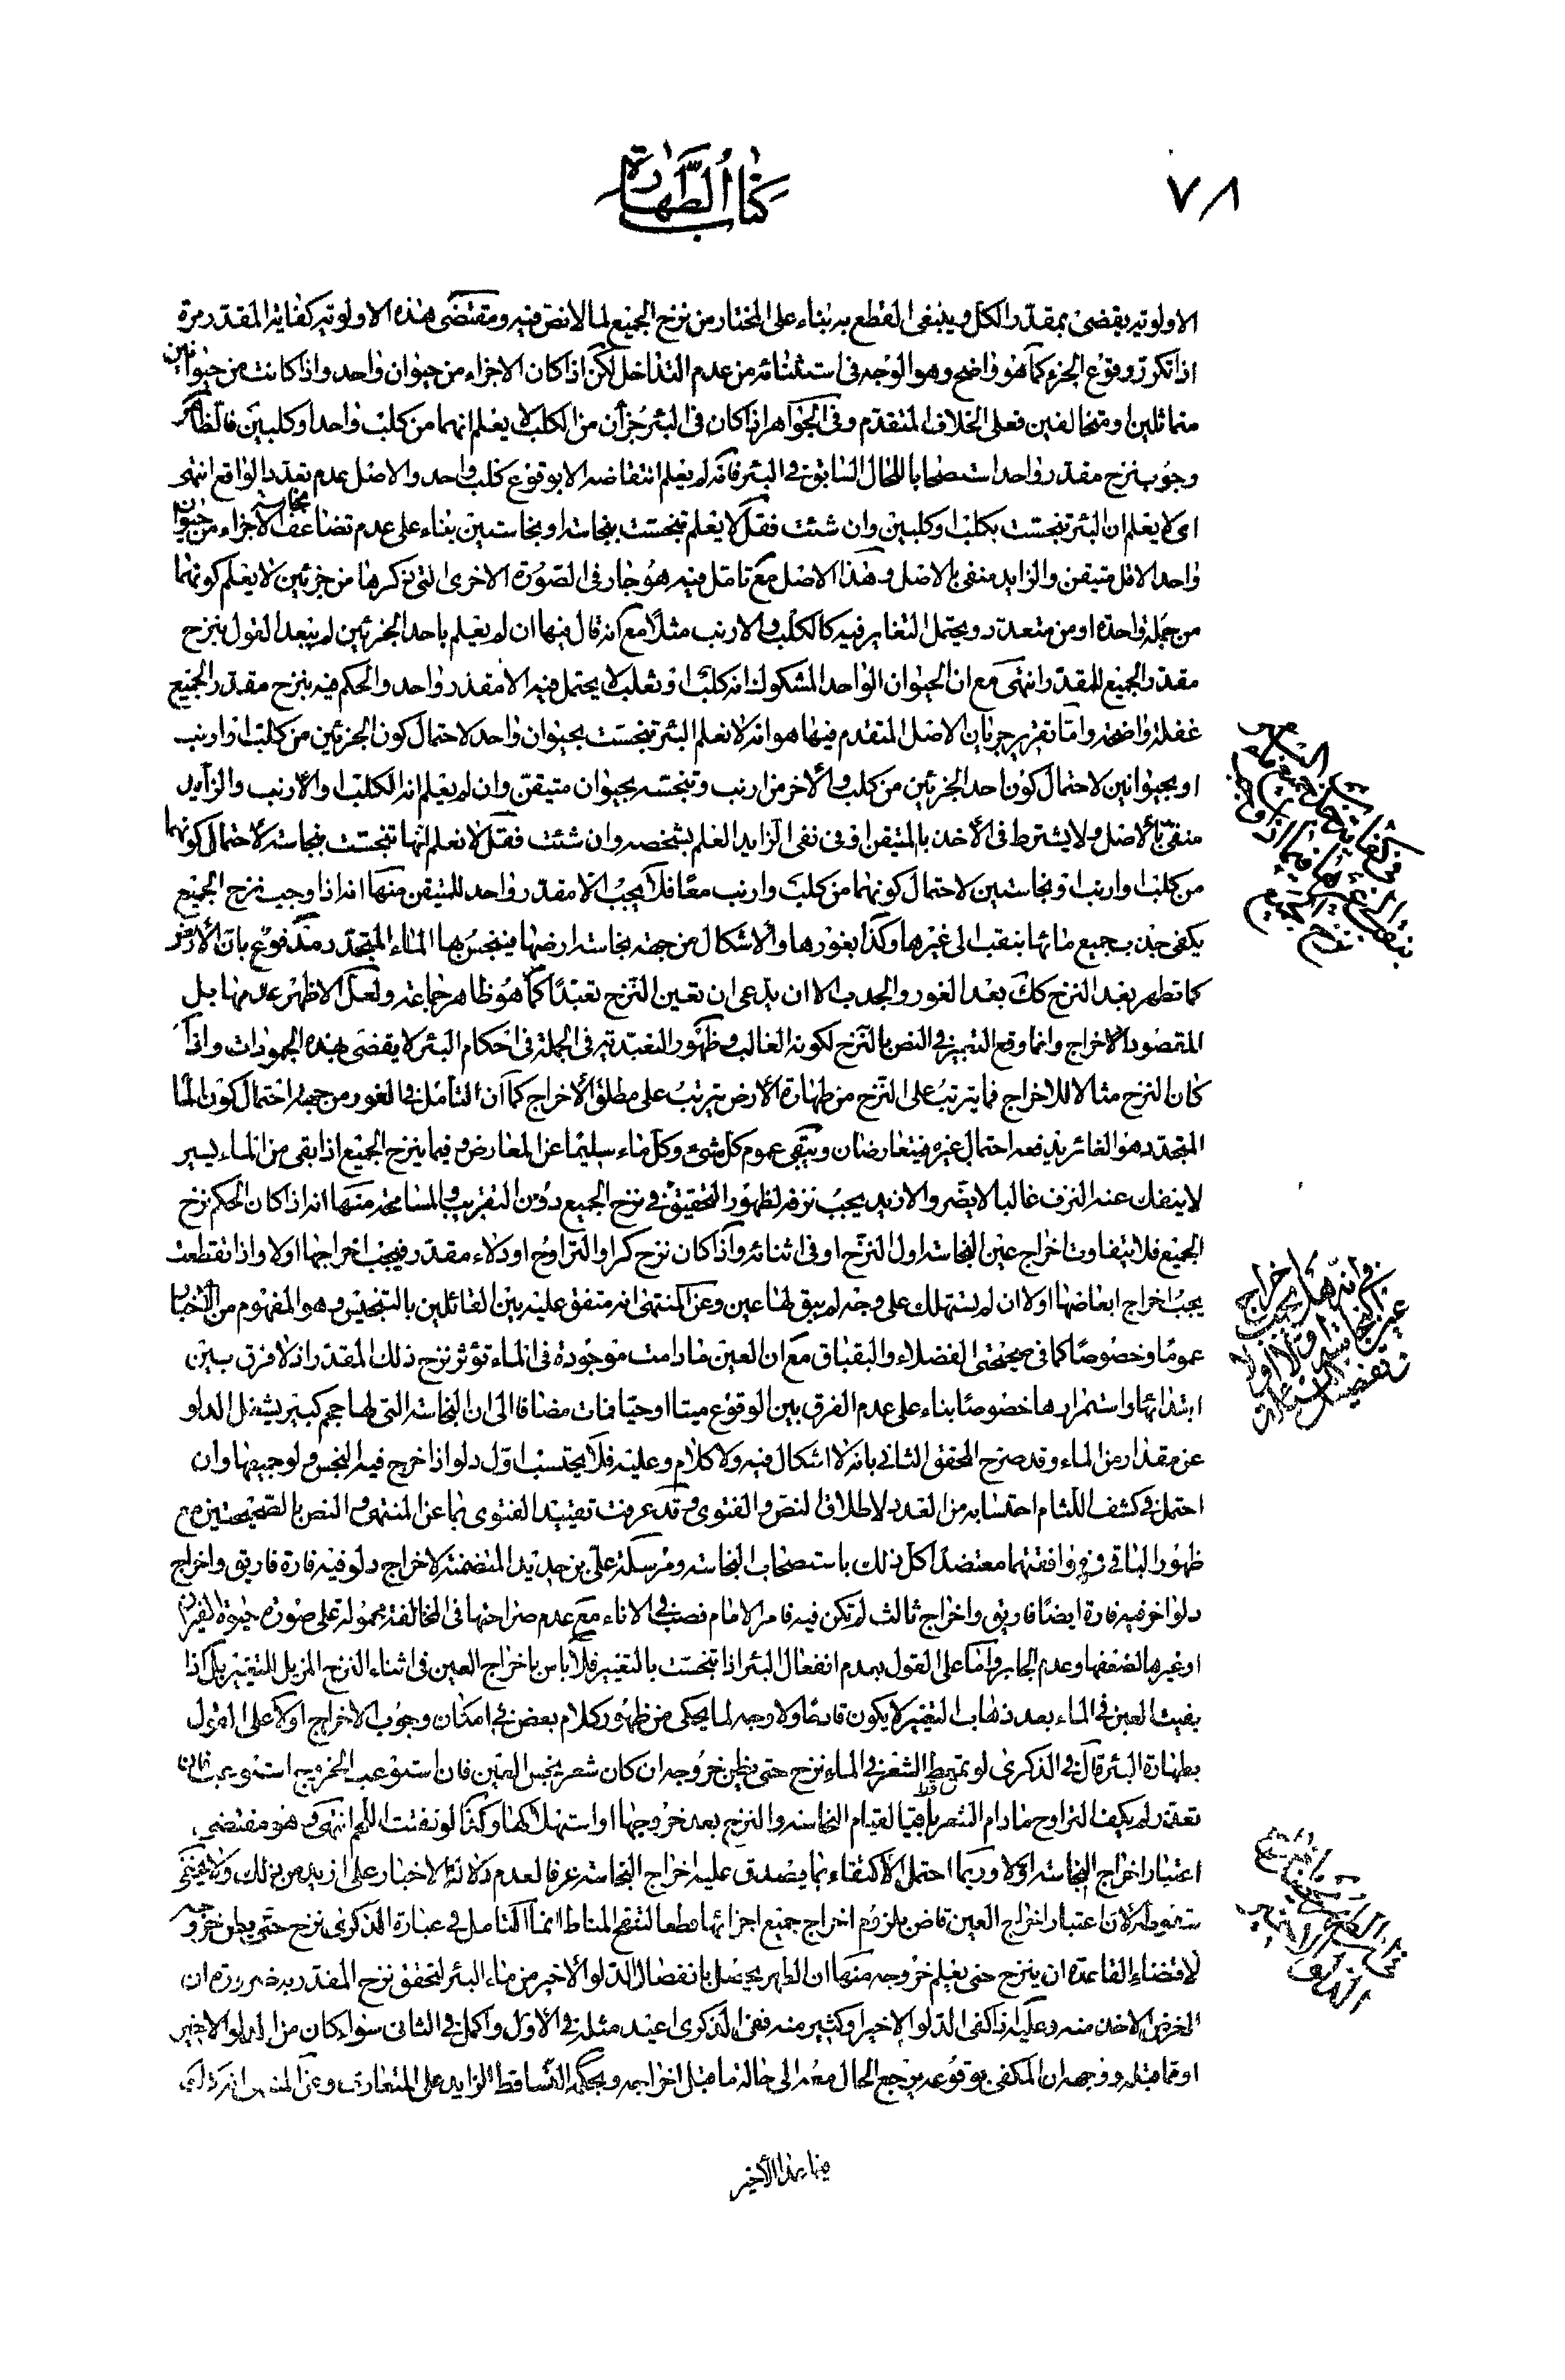 ٧٨
كتاب الطهارة
الاولوية يقضى بمقدر الكل وينبغى القطع به بناء على المختار من نزح الجميع لما لا نص فيه ومقتضى هذه الاولوية كفاية المقدر مرة
اذا تكرر وقوع الجزء كما هو واضح وهو الوجه فى استثنائه من عدم التداخل لكن اذا كان الاجزاء من حيوان واحد واذا كانت من حيوانين
متماثلين او متخالفين فعلى الخلاف المتقدم وفى الجواهر اذا كان فى البئر جزأن من الكلب لا يعلم انهما من كلب واحد او كلبين فالظاهر
وجوب نزح مقدر واحد استصحابا للحال السابق فى البئر فانه لم يعلم انتقاضه الا بوقوع كلب واحد والاصل عدم تعدد الواقع انتهى
اى لا يعلم ان البئر تنجست بكلب او كلبين وان شئت فقل لا يعلم تنجست بنجاسة او نجاستين بناء على عدم تضاعف نجاسة الاجزاء من حيوان
واحد الاقل متيقن والزايد منفى بالاصل وهذا الاصل مع تامل فيه هو جار فى الصورة الاخرى التى ذكرها من جزئين لا يعلم كونهما
من جملة واحدة او من متعدد ويحتمل التغاير فيه كالكلب والارنب مثلا مع انه قال فيها ان لم يعلم باحد الجزئين لم يبعد القول بنزح
مقدر الجميع للمقدر انتهى مع ان الحيوان الواحد المشكوك انه كلب او ثعلب لا يحتمل فيه الا مقدر واحد والحكم فيه بنزح مقدر الجميع
غفلة واضحة واما تقرير جريان الاصل المتقدم فيها هو انه لا نعلم البئر تنجست بحيوان واحد لاحتمال كون الجزئين من كلب او ارنب
او بحيوانين لاحتمال كون احد الجزئين من كلب والآخر من ارنب وتنجسه بحيوان متيقن وان لم يعلم انه الكلب او الارنب والزايد
منفى بالاصل ولا يشترط فى الاخذ بالمتيقن او فى نفى الزايد العلم بشخصه وان شئت فقل لا نعلم انها تنجست بنجاسة لاحتمال كونهما
من كلب او ارنب او نجاستين لاحتمال كونهما من كلب وارنب معا فلا يجب الا مقدر واحد للمتيقن منها انه اذا وجب نزح الجميع
يكفى جذب جميع مائها بنقب الى غيرها وكذا بغورها والاشكال من جهة نجاسة ارضها فينجس بها الماء المتجدد مندفع بان الارض
كما تطهر بعد النزح كك بعد الغور والجذب الا ان يدعى ان تعين النزح تعبدا كما هو ظاهر جماعة ولعل الاظهر عدمها بل
المقصود الاخراج وانما وقع التعبير فى النص بالنزح لكونه الغالب وظهور التعبدية فى الجملة فى احكام البئر لا يقضى بهذه الجمودات واذا
كان النزح مثالا للاخراج فما يترتب على النزح من طهارة الارض يترتب على مطلق الاخراج كما ان التامل فى الغور من جهة احتمال كون الماء
المتجدد هو الغائر يدفعه احتمال غيره فيتعارضان ويبقى عموم كل شىء وكل ماء سليما عن المعارض وفيما ينزح الجميع اذا بقى من الماء يسير
لا ينفك عنه النزف غالبا لا يضر والازيد يجب نزفه لظهور التحقيق فى نزح الجميع دون التقريب والمسامحة منها انه اذا كان الحكم نزح
الجميع فلا يتفاوت اخراج عين النجاسة اول النزح او فى اثنائه واذا كان نزح كر او التراوح او دلاء مقدر فيجب اخراجها اولا واذا تقطعت
يجب اخراج ابعاضها اولا ان لم تستهلك على وجه لم يبق لها عين وعن المنتهى انه متفق عليه بين القائلين بالتنجيس وهو المفهوم من الاخبار
عموما وخصوصا كما فى صحيحتى الفضلاء والبقباق مع ان العين ما دامت موجودة فى الماء تؤثر نزح ذلك المقدر اذ لا فرق بين
ابتدائها واستمرارها خصوصا بناء على عدم الفرق بين الوقوع ميتا او حيا فمات مضافا الى ان النجاسة التى لها حجم كبير يشغل الدلو
عن مقدار من الماء وقد صرح المحقق الثانى بانه لا اشكال فيه ولا كلام وعليه فلا يحتسب اول دلو اذا خرج فيه النجس ولو جميعها وان
احتمل فى كشف اللثام احتسابه من العدد لاطلاق النص والفتوى وقد عرفت تقييد الفتوى بما عن المنتهى والنص بالصحيحتين مع
ظهور الباقى فى موافقتهما معتضدا كل ذلك باستصحاب النجاسة ومرسلة على بن حديد المتضمنة لاخراج دلو فيه فارة فاريق واخراج
دلو اخر فيه فارة ايضا فاريق واخراج ثالث لم تكن فيه فامر الامام فصب فى الاناء مع عدم صراحتها فى المخالفة محمولة على صورة حيوة الفيران
او غيرها لضعفها وعدم الجابر واما على القول بعدم انفعال البئر اذا تنجست بالتغيير فلا باس باخراج العين فى اثناء النزح المزيل للتغيير بل اذا
بقيت العين فى الماء بعد ذهاب التغير لا يكون قادحا ولا وجه لما يحكى من ظهور كلام بعض فى امكان وجوب الاخراج اولا على القول
بطهارة البئر قال فى الذكرى لو تمعط الشعر فى الماء نزح حتى يظن خروجه ان كان شعر نجس العين فان استوعب الخروج استوعبت فان
تعذر لم يكف التراوح ما دام الشعر باقيا لقيام النجاسة والنزح بعد خروجها او استهلاكها وكذا لو تفتت اللحم انتهى وهو مقتضى
اعتبار اخراج النجاسة اولا وربما احتمل الاكتفاء بما يصدق عليه اخراج النجاسة عرفا لعدم دلالة الاخبار على ازيد من ذلك ولا يخفى
سقوطه لان اعتبار اخراج العين قاض بلزوم اخراج جميع اجزائها قطعا لتنقح المناط انما التامل فى عبارة الذكرى نزح حتى يظن خروجه
لاقتضاء القاعدة ان ينزح حتى يعلم خروجه منها ان الطهر يحصل بانفصال الدلو الاخير من ماء البئر لتحقق نزح المقدر به ضرورة ان
الغرض الاخذ منه وعليه اذا اكفى الدلو الاخير او كثير منه ففى الذكرى اعيد مثله فى الاول واكمل فى الثانى سواء كان من الدلو الاخير
او مما قبله ووجهه ان المكفى بوقوعه يرجع الحال معه الى حالة ما قبل اخراجه ويحكم التساقط الزايد على المتعارف وعن المنتهى
فى انه هل يجب اخراج
عين النجاسة اولا